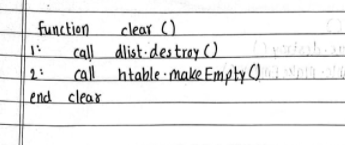 function clear ()
1: call dlist.destroy ()
2: call htable.makeEmpty ()
end clear